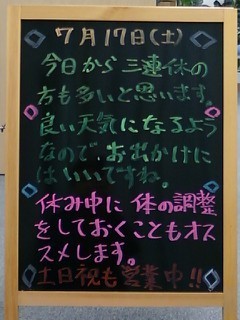 7月17日(土)
今日から三連休の
方も多いと思います。
良い天気になるよう
なので、お出かけに
はいいですね。
休み中に体の調整
をしておくこともオス
スメします。
土日祝も営業中!!